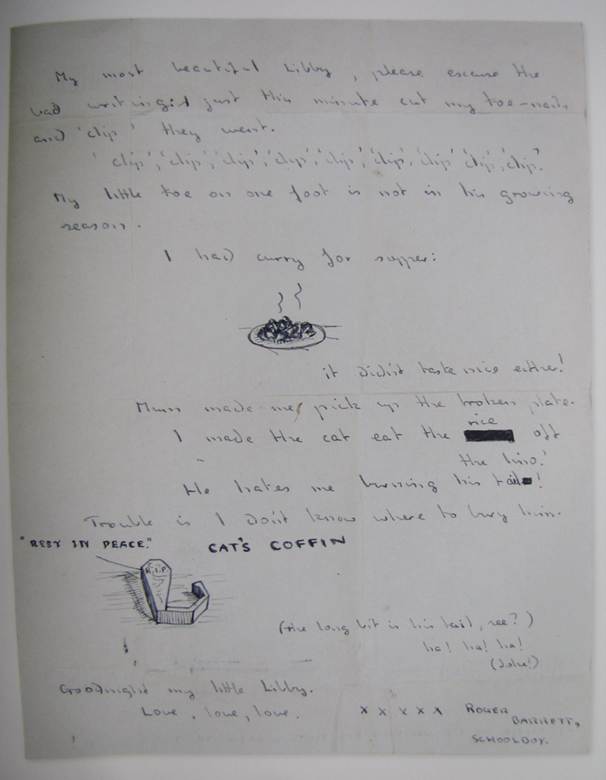 My most beautiful Libby, please excuse the
bad writing, I just this minute cut my toe-nails
and 'clip' they went.
'clip', 'clip', 'clip', 'clip', 'clip', 'clip', 'clip' 'clip', 'clip'.
My little toe on one foot is not in his growing
season.
I had curry for supper:
it didn't taste nice either!
Mum made me pick up the broken plate.
I made the cat eat the rice off
the lino!
He hates me burning his tail!
Trouble is I don't know where to bury him.
"REST IN PEACE." CAT'S COFFIN
R.I.P
(the long bit is his tail, see?)
ha! ha! ha!
(Joke!)
Goodnight my little Libby.
Love, love, love. x x x x x ROGER
BARRETT,
SCHOOLBOY.